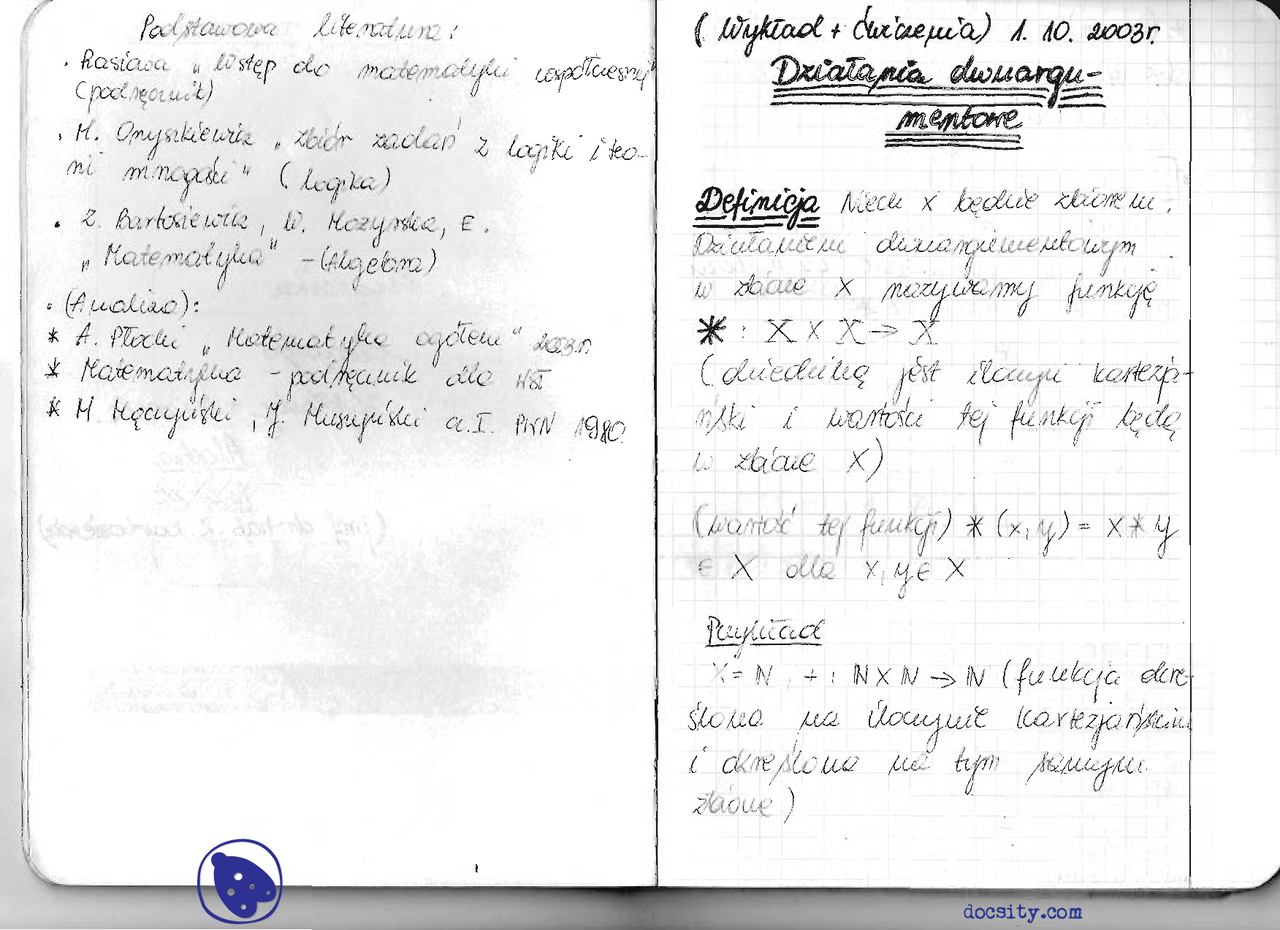 Podstawowa literatura:
· Rasiowa „Wstęp do matematyki współczesnej"
(podręcznik)
· H. Onyszkiewicz „zbiór zadań z logiki i teo-
rii mnogości" (logika)
· Z. Bartosiewicz, W. Mozyrska, E.
„Matematyka" – (Algebra)
· (Analiza):
* A. Płocki „Matematyka ogólem" 2003r.
* Matematyka – podręcznik dla
* M. Mączyński, J. Muszyński cz. I. PWN 1980
(Wykład + Ćwiczenia) 1. 10. 2003r.
Działania dwuargu-
mentowe
Definicja Niech X będzie zbiorem.
Działaniem dwuargumentowym
w zbiorze X nazywamy funkcję
* : X × X → X
(dziedziną jest iloczyn kartezja-
ński i wartości tej funkcji będą
w zbiorze X)
(wartość tej funkcji) * (x, y) = x * y
∈ X dla x, y ∈ X
Przykład
X = N, + : N × N → N (funkcja okre-
ślona na iloczynie kartezjańskim
i określona na tym samym
zbiorze)
1
docsity.com